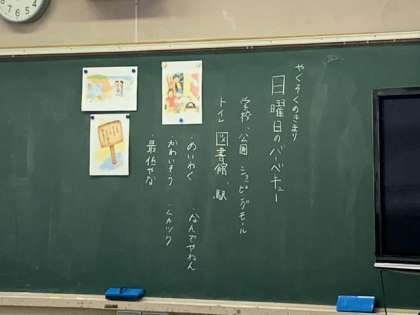 やくそくのきまり
日曜日のバーベキュー
学校、公園 ショッピングモール
トイレ 図書館、駅
・めいわく ・なんでやねん
・かわいそう ・ムカツク
・最低やな